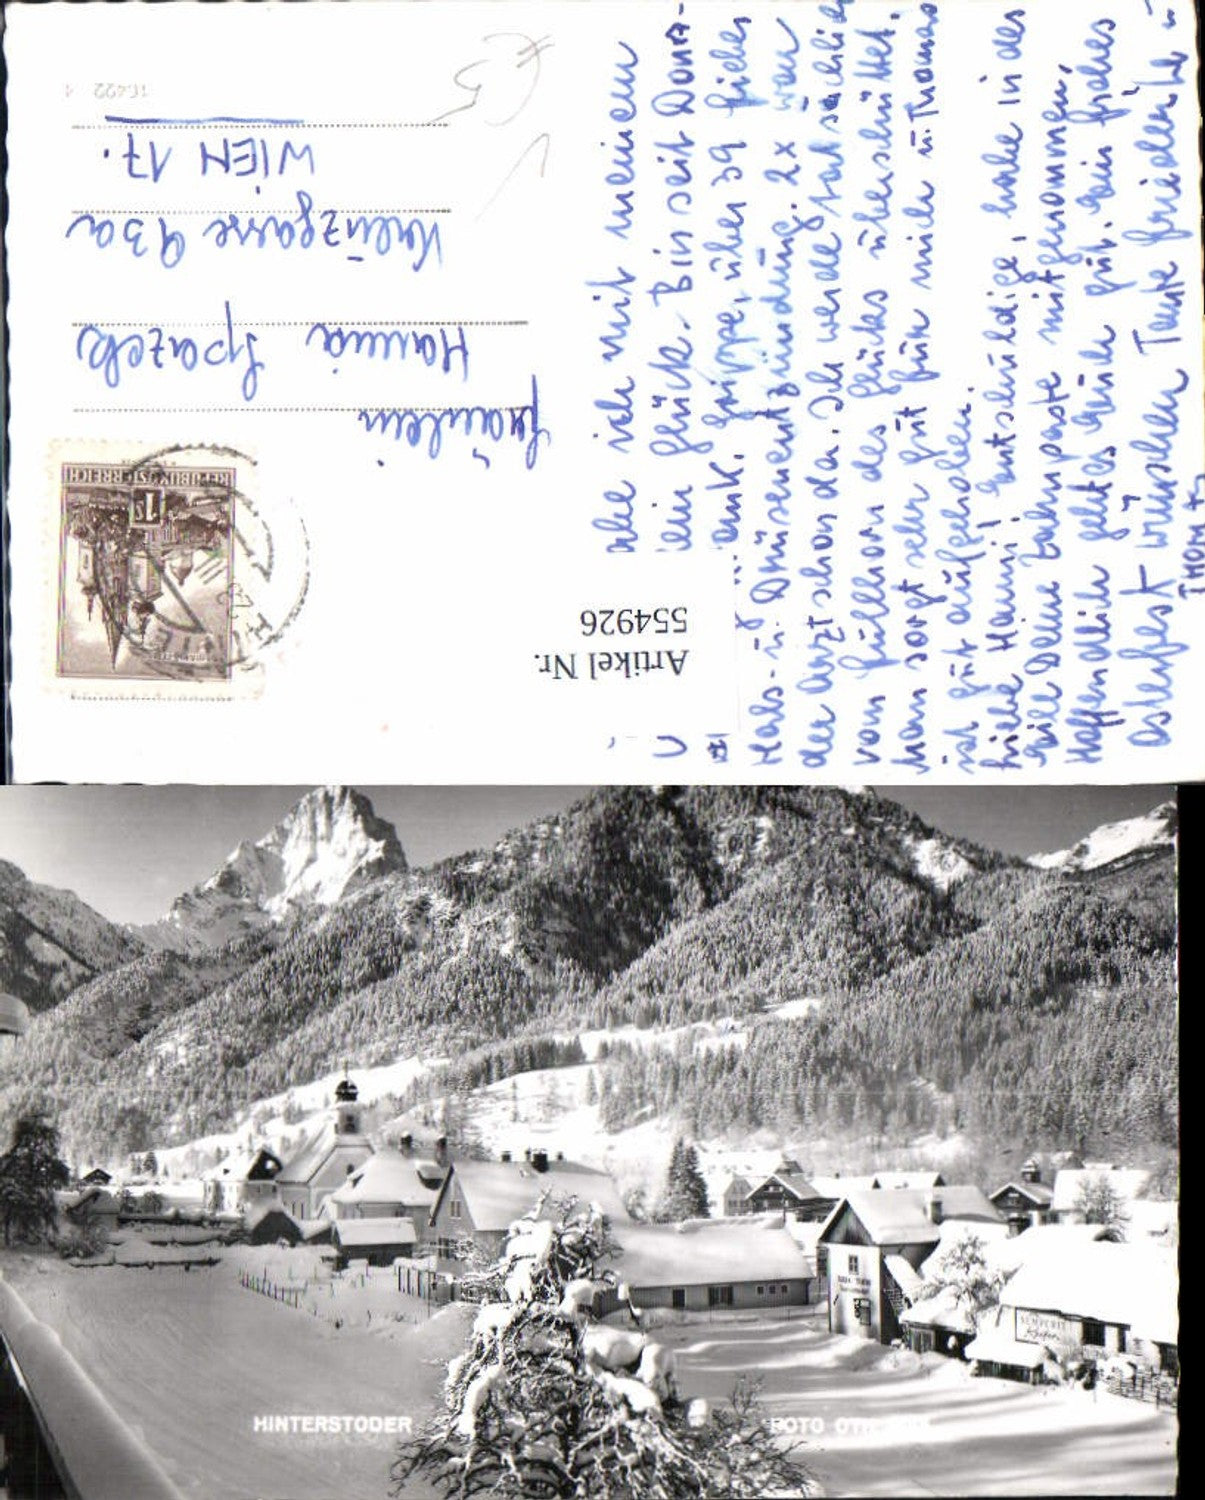 16422 1
€ 5
Fräulein
Hanna Spazek
Kreuzgasse 93a
WIEN 17.
REPUBLIK ÖSTERREICH
1 S
Artikel Nr.
554926
abe ich mit meinem
ein Glück. Bin seit Donn-
ank. Grippe, über 39 Fieber
Hals- u. Drüsenentzündung. 2x war
der Arzt schon da. Ich werde tatsächlich
vom Füllhorn des Glücks überschüttet.
Man sorgt sehr gut für mich u. Thomas
ist gut aufgehoben.
Liebe Hanni, entschuldige, habe in der
Eile Deine Zahnpaste mitgenommen.
Hoffentlich geht es Euch gut. Ein frohes
Osterfest wünschen Tante Friederike u
THOMAS
HINTERSTODER
FOTO
SEMPERIT
Reifen